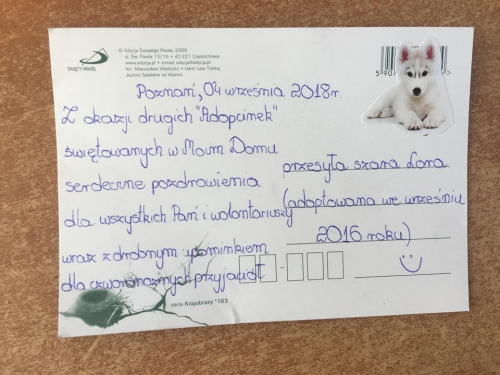 ŚWIĘTY PAWEŁ
© Edycja Świętego Pawła, 2005
ul. Św. Pawła 13/15 • 42-221 Częstochowa
www.edycja.pl • e-mail: edycja@edycja.pl
fot. Mieczysław Wieliczko • tekst: Lew Tołstoj
5 907
Poznań, 04 września 2018r.
Z okazji drugich "Adopcinek"
świętowanych w Moim Domu
serdeczne pozdrowienia
dla wszystkich Pań i wolontariuszy
wraz z drobnym upominkiem
dla czworonożnych przyjaciół
przesyła szara Lora
(adoptowana we wrześniu
2016 roku)
seria Krajobrazy *163